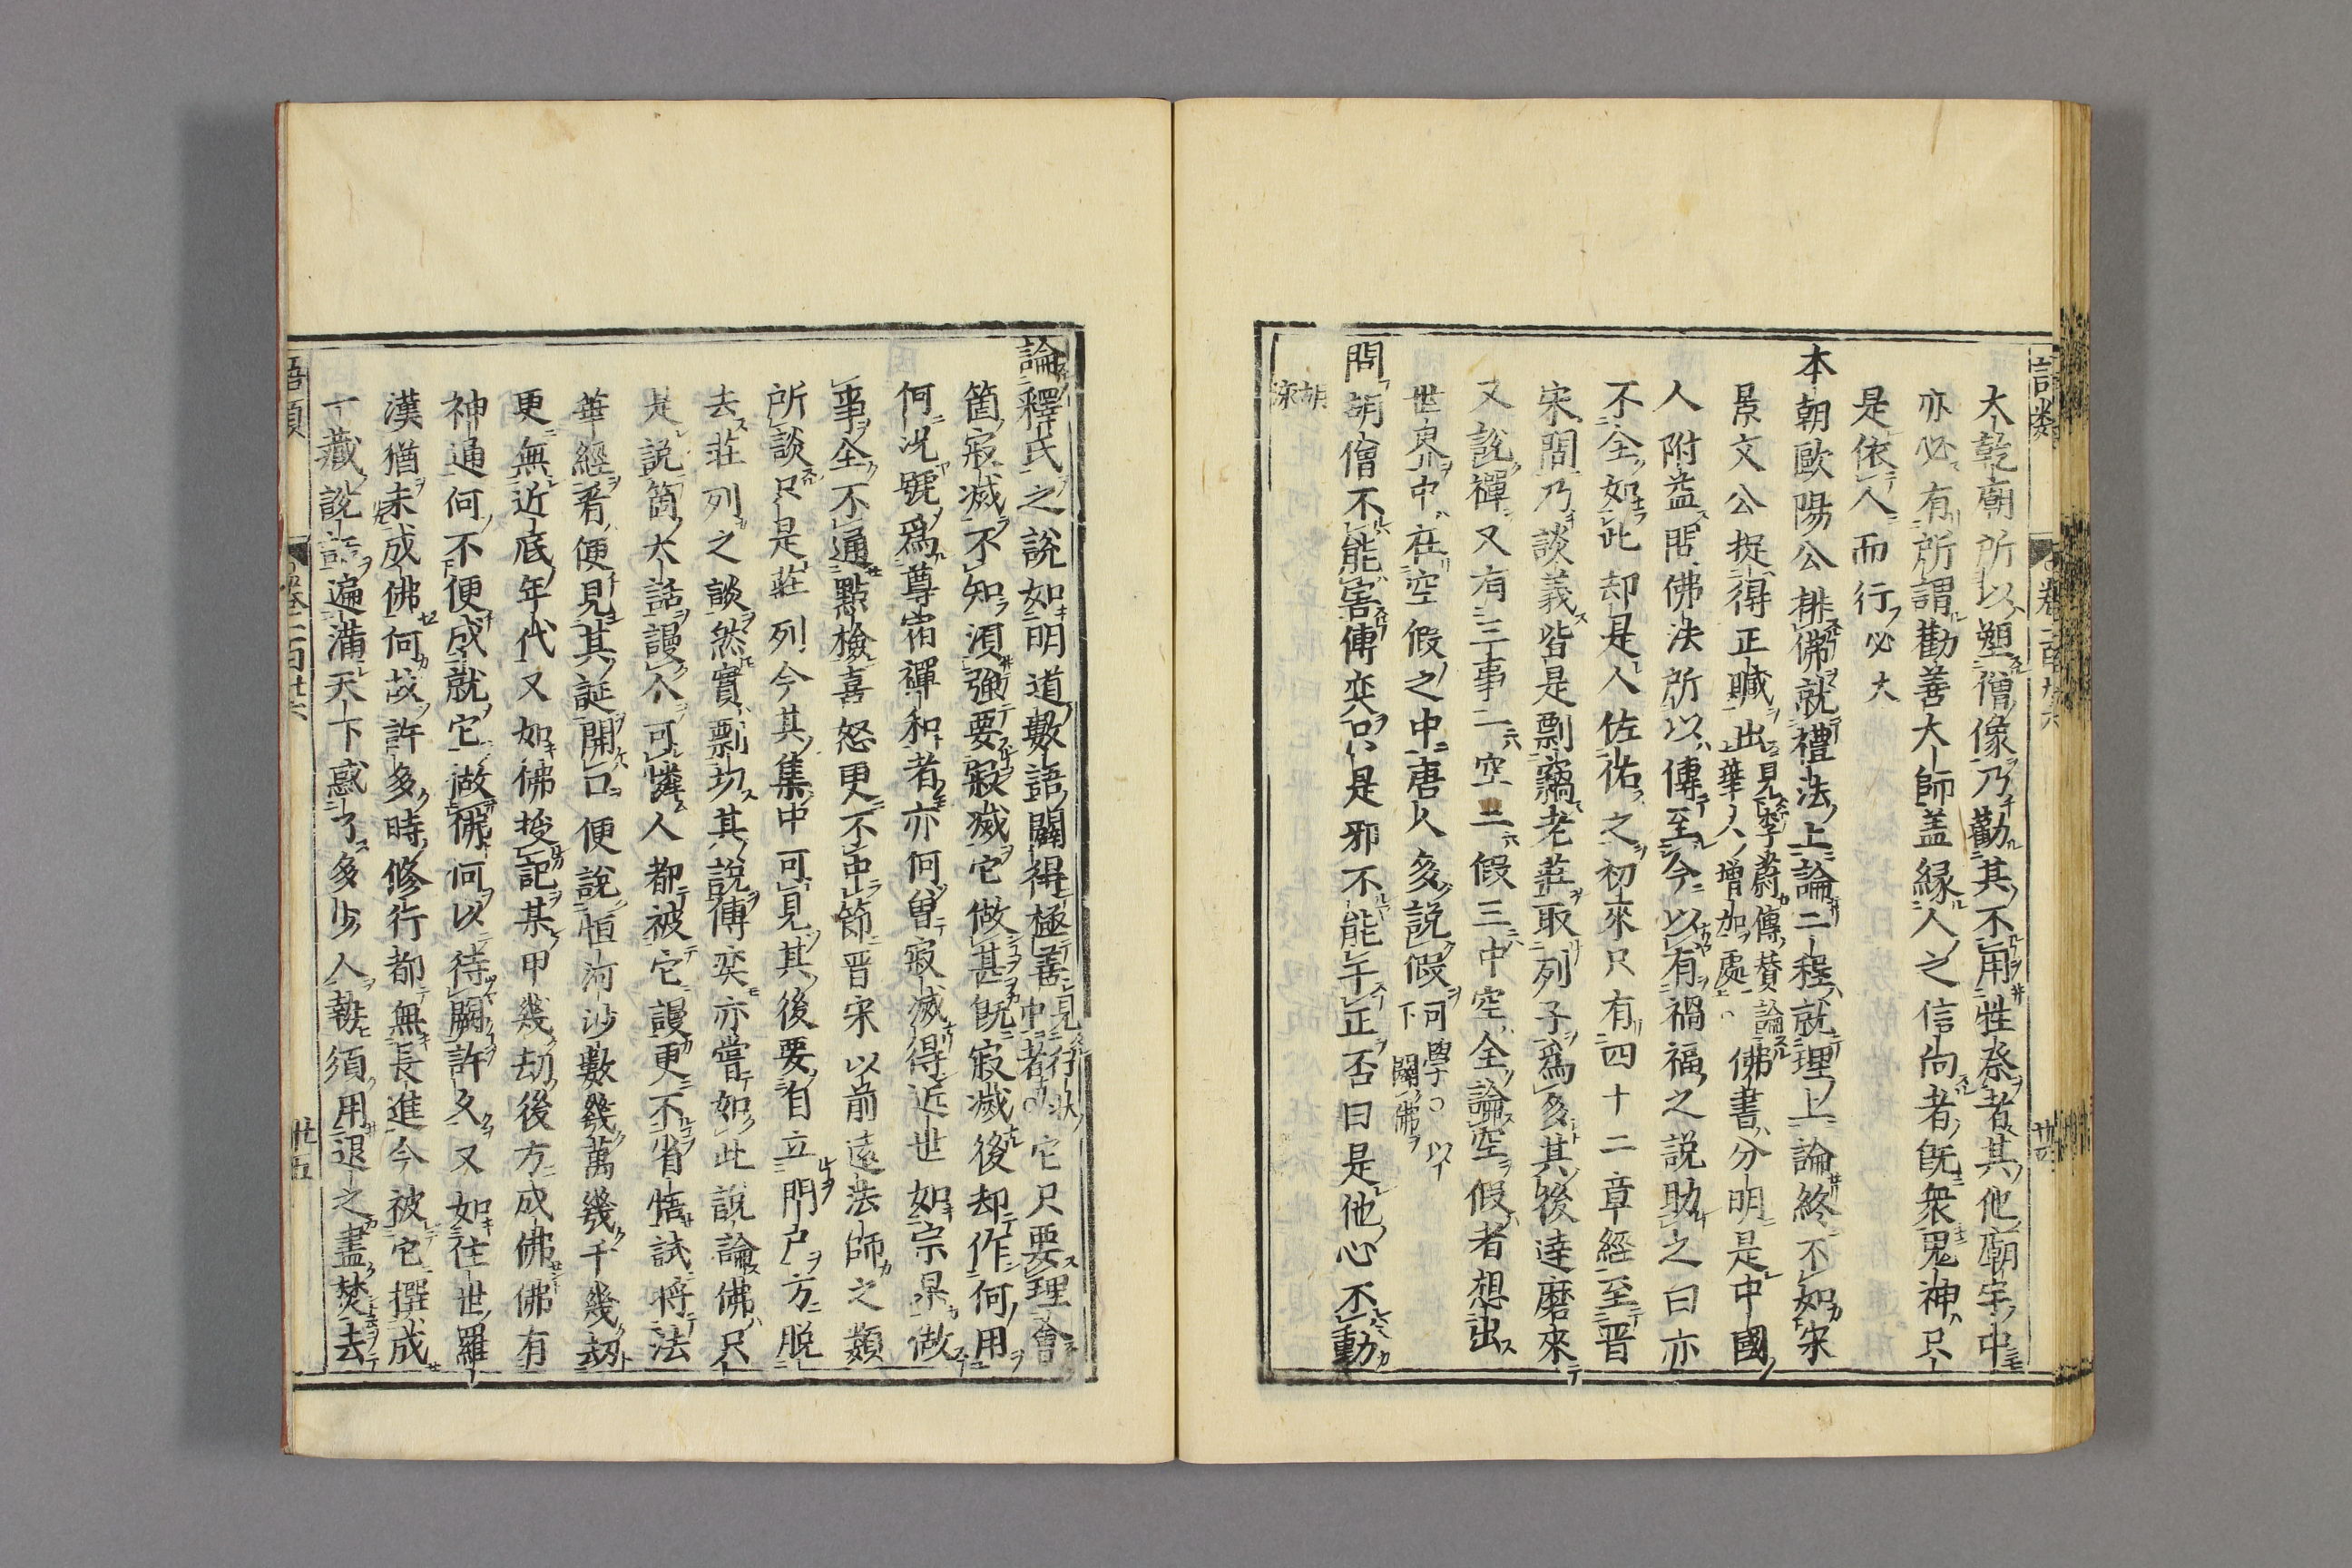 語類 卷一百廿六 廿四
大乾廟所以塑僧像乃勸其不用牲祭者其他廟宇中
亦必有所謂勸善大師盖緣人之信向者旣衆鬼神只
是依人而行必大
本朝歐陽公排佛就禮法上論二程就理上論終不如宋
景文公捉得正贓出見李蔚傳賛論佛華人増加處○佛書分明是中國
人附益問佛法所以傳至今以有禍福之説助之曰亦
不全如此却是人佐佑之初來只有四十二章經至晋
宋間乃談義皆是剽竊老莊取列子爲多其後達磨來
又說禪又有三事一空二假三中空全論空假者想出
世界中在空假之中唐人多説假可學○以下闢佛
問胡僧不能害傅奕只是邪不能干正否曰是他心不動
胡泳
論釋氏之說如明道數語闢得極善見行狀中者○它只要理會
箇寂滅不知須強要寂滅它做甚旣寂滅後却作何用
何況號爲尊宿禪和者亦何曾寂滅得近世如宗杲做
事全不通點檢喜怒更不中節晋宋以前遠法師之類
所談只是莊列今其集中可見其後要自立門户方脫
去莊列之談然實剽切其說傅奕亦嘗如此說論佛只
是説箇大話謾人可憐人都被它謾更不省悟試將法
華經看便見其誕開口便說恒河沙數幾萬幾千幾刧
更無近底年代又如佛授記某甲幾劫後方成佛佛有
神通何不便成就它做佛何以待闕許久又如住世羅
漢猶未成佛何故許多時修行都無長進今被它撰成
一藏說話遍滿天下惑了多少人執須用退之盡焚去
語類 卷一百廿六 廿五